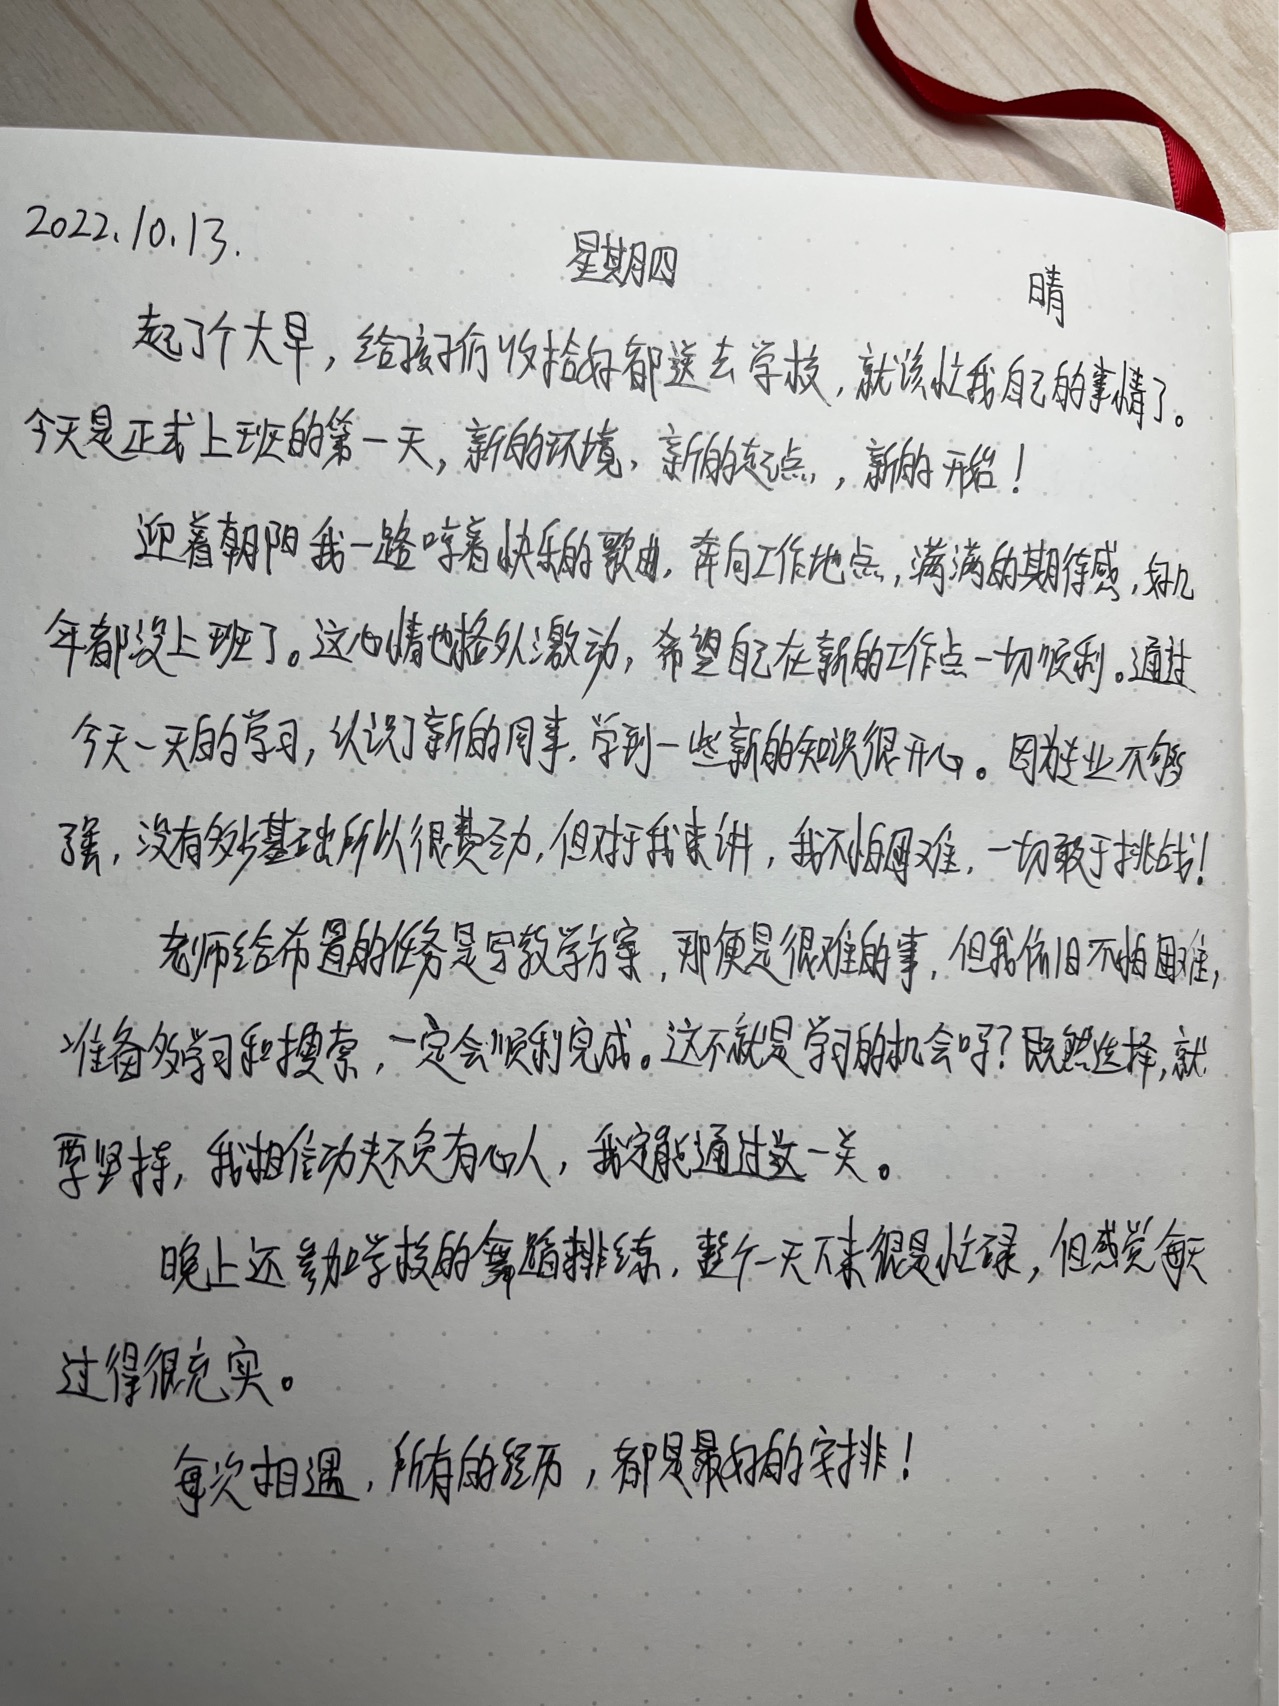 2022.10.13.
星期四
晴
起了个大早，给孩子们收拾好都送去学校，就该忙我自己的事情了。
今天是正式上班的第一天，新的环境、新的起点，，新的开始！
迎着朝阳我一路哼着快乐的歌曲，奔向工作地点，满满的期待感，好几
年都没上班了。这心情也格外激动，希望自己在新的工作点一切顺利。通过
今天一天的学习，认识了新的同事，学到一些新的知识很开心。因为专业不够
强，没有多少基础所以很费劲，但对于我来讲，我不怕困难，一切敢于挑战！
老师给布置的任务是写教学方案，那便是很难的事，但我依旧不怕困难，
准备多学习和摸索，一定会顺利完成。这不就是学习的机会吗？既然选择，就
要坚持，我相信功夫不负有心人，我定能通过这一关。
晚上还参加学校的舞蹈排练，整个一天下来很是忙碌，但感觉每天
过得很充实。
每次相遇，所有的经历，都是最好的安排！